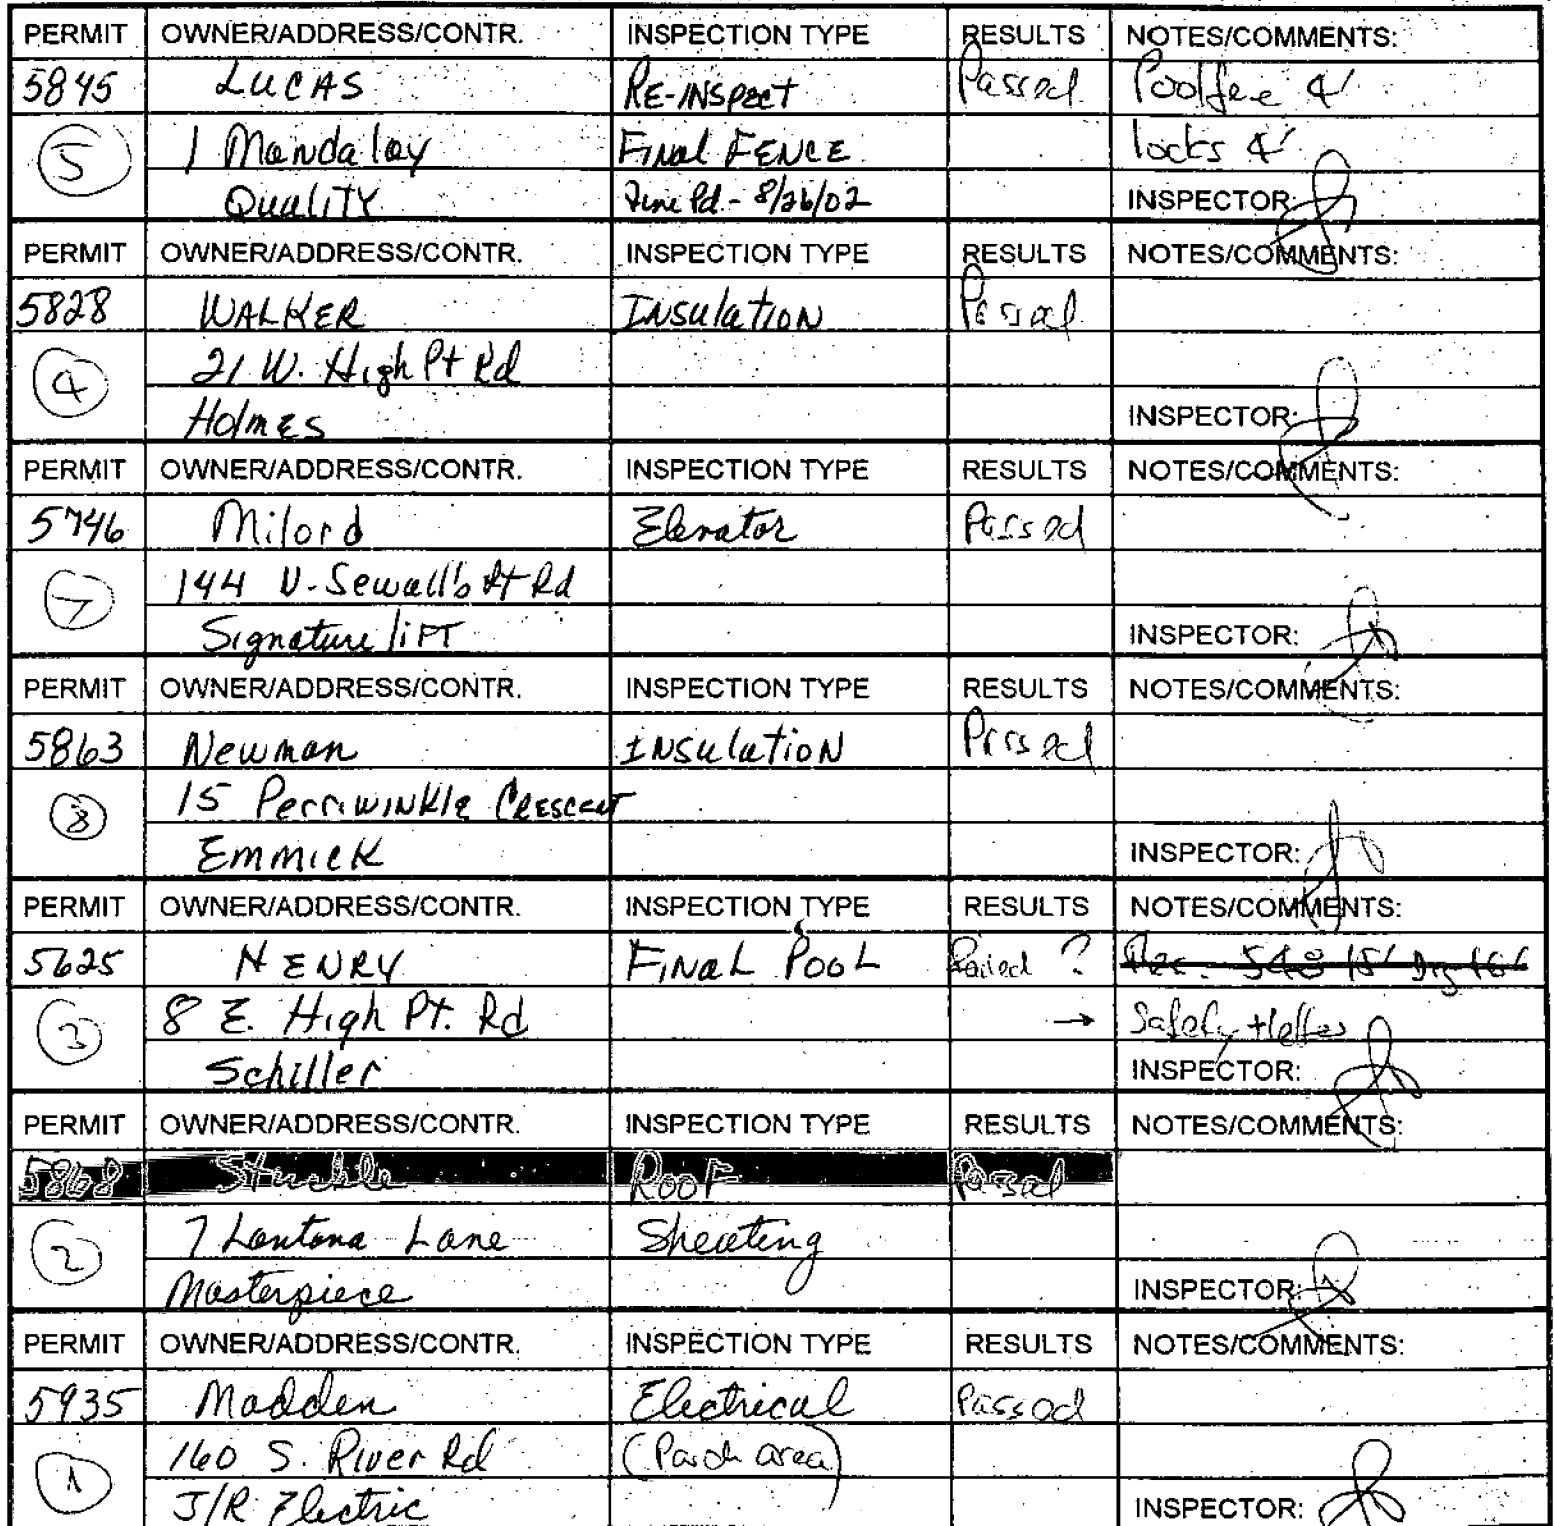 PERMIT OWNER/ADDRESS/CONTR. INSPECTION TYPE RESULTS NOTES/COMMENTS:
5845 LUCAS RE-INSPECT Passed
5 1 Mandalay FINAL FENCE locks
QUALITY Pd. - 8/26/02 INSPECTOR:
PERMIT OWNER/ADDRESS/CONTR. INSPECTION TYPE RESULTS NOTES/COMMENTS:
5828 WALKER INSulatION Passed
4 21 W. High Pt Rd
HolmES INSPECTOR:
PERMIT OWNER/ADDRESS/CONTR. INSPECTION TYPE RESULTS NOTES/COMMENTS:
5746 Milord Elevator Passed
7 144 N. Sewall's Pt Rd
Signature lift INSPECTOR:
PERMIT OWNER/ADDRESS/CONTR. INSPECTION TYPE RESULTS NOTES/COMMENTS:
5863 Newman INSulatioN Passed
15 PerriwiNKle CRESCENT
EmmicK INSPECTOR:
PERMIT OWNER/ADDRESS/CONTR. INSPECTION TYPE RESULTS NOTES/COMMENTS:
5625 HENRY FINAL POOL Failed ?
3 8 E. High Pt. Rd → Safety
Schiller INSPECTOR:
PERMIT OWNER/ADDRESS/CONTR. INSPECTION TYPE RESULTS NOTES/COMMENTS:
5868 ROOF Passed
2 7 Lantana Lane Sheating
Masterpiece INSPECTOR:
PERMIT OWNER/ADDRESS/CONTR. INSPECTION TYPE RESULTS NOTES/COMMENTS:
5935 Madden Electrical Passed
1 160 S. River Rd area)
J/R Electric INSPECTOR: